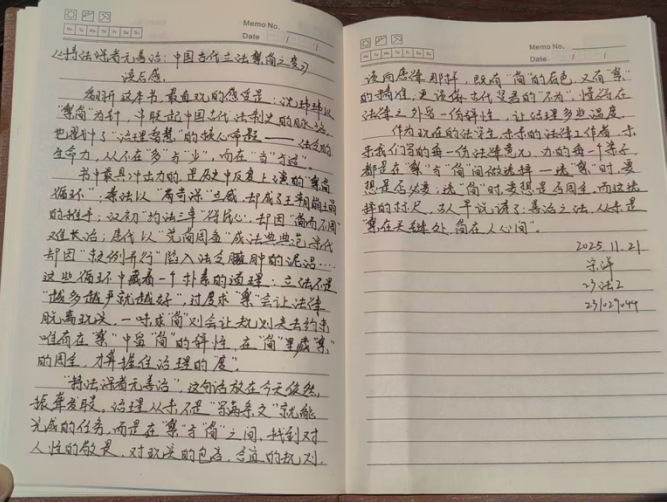 Memo No.
Mo Tu We Th Fr Sa Su
Date / /
《持法深者无善治：中国古代立法繁简之变》
读后感
翻开这本书，最直观的感受是：沈玮玮以
"繁简"为针，串联起中国古代法制史的脉络，
也叩了"治理智慧"的核心命题——法律的
生命力，从不在"多"与"少"，而在"当"与"适"。
书中最具冲击力的，是历史中反复上演的"繁简
循环"：秦法以"繁苛深"立威，却成了王朝崩塌
的推手；汉初"约法三章"得民心，却因"简而不周"
难长治；唐代以"宽简周备"成法典典范，宋代
却因"敕例并行"陷入法文臃肿的泥沼……
这些循环中藏着一个朴素的道理：立法不是
"越多越严就越好"，过度求"繁"会让法律
脱离现实，一味求"简"则会让规则失去约束，
唯有在"繁"中留"简"的弹性，在"简"里藏"繁"
的周全，才算握住治理的"度"。
"持法深者无善治"，这句话放在今天依然
振聋发聩。治理从来不是"写满条文"就能
完成的任务，而是在"繁"与"简"之间，找到对
人性的敬畏，对现实的包容，合宜的规则，
Memo No.
Mo Tu We Th Fr Sa Su
Date / /
该向唐律那样，既有"简"的底色，又有"繁"
的精准，更该像古代贤君的"不为"，懂得在
法律之外留一份弹性，让治理多些温度。
作为现在的法学生，未来的法律工作者，未
来我们写的每一份法律意见，办的每一个案子，
都是在"繁"与"简"间做选择——选"繁"时，要
想是否必要；选"简"时，要想是否周全，而这选
择的标尺，古人早说透了：善治之法，从来是
"繁在关键处，简在人心间"。
2025.11.21
宗洋
23法2
231029044